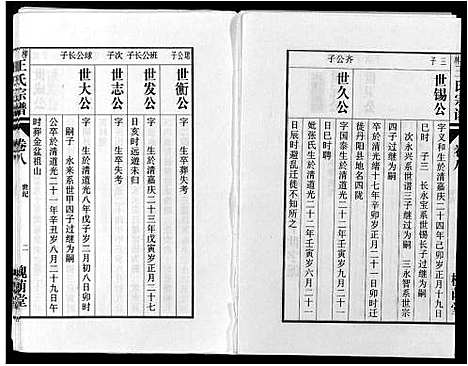 三子
世锡公
字义和生於清嘉庆二十四年己卯岁正月十九日
巳时 子三 长永宝系世锡长子过继为嗣
次永兴系世谱三子继为嗣 三永智系世宗
四子过继为嗣
公卒於清道光绪十七年辛卯岁正月二十一日
徒丹阳县地名四陇
齐公子
世久公
字国泰生於清道光二十一年壬寅岁九月二十一
日巳时聘
妣张氏生於清道光二十二年壬寅岁六月二十一
日辰时避乱迁徒不知所之
王氏宗谱
卷八
世纪
二
槐荫堂
琚公子
世衡公
字 生卒葬失考
班公长子
世发公
字 生於清嘉庆二十三年戊寅岁正月二十七
日亥时远游未归
次子
世志公
字 生卒失考
球公长子
世大公
字 生於清道光八年戊子岁二月初八日卯时
嗣子 永来系世甲四子过继为嗣
公卒於清道光二十一年辛丑岁八月二十九日午
时葬金盆祖山